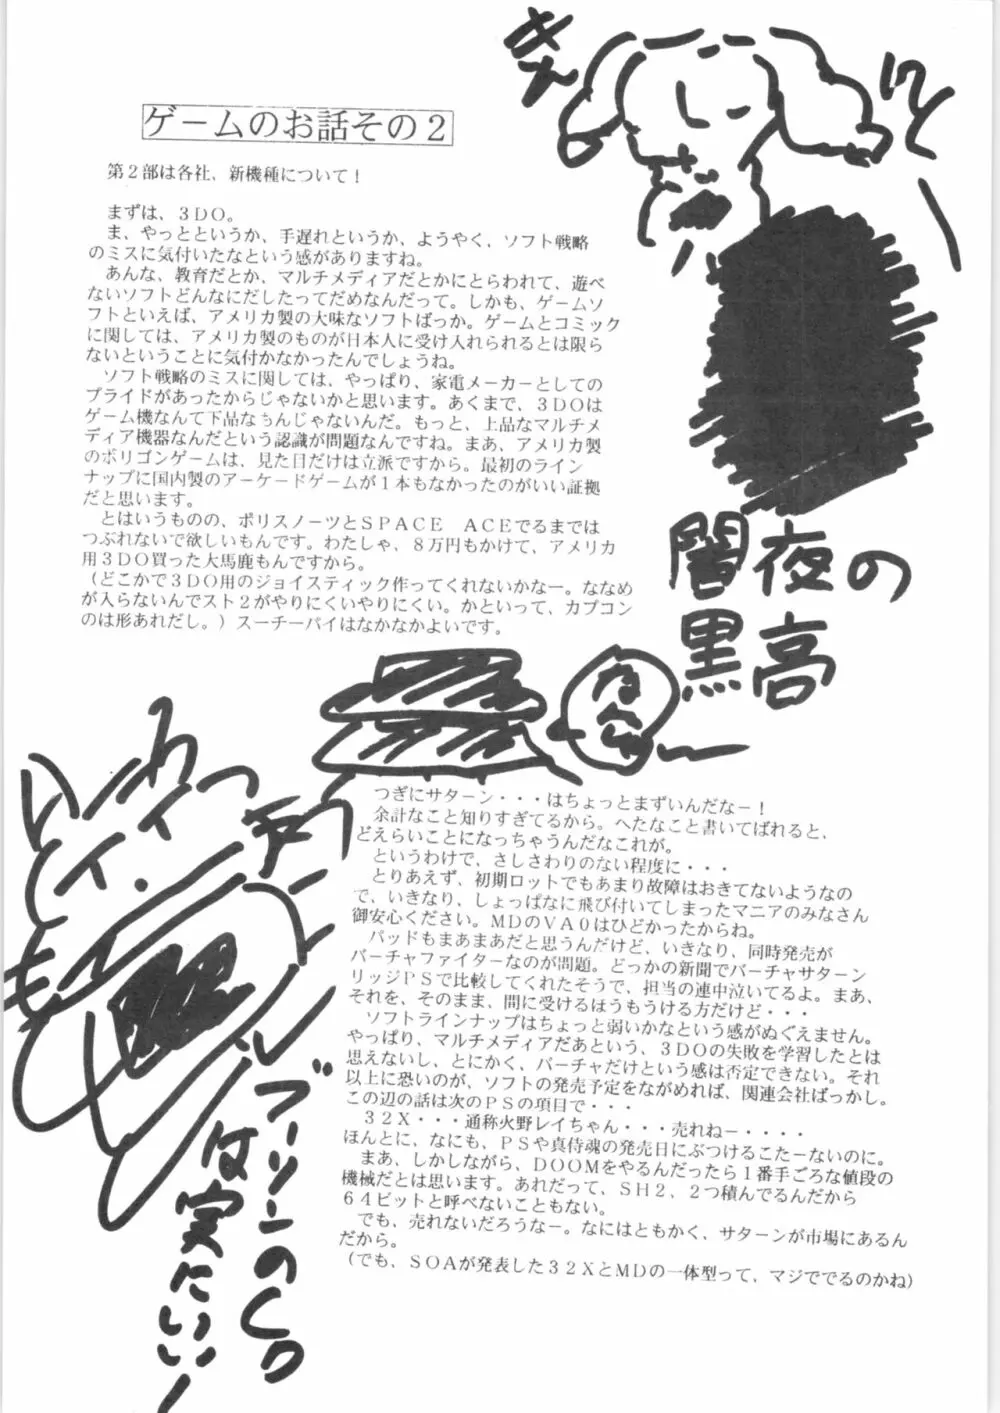 ゲームのお話その2
第2部は各社、新機種について!
まずは、3DO。
ま、やっとというか、手遅れというか、ようやく、ソフト戦略
のミスに気付いたなという感がありますね。
あんな、教育だとか、マルチメディアだとかにとらわれて、遊べ
ないソフトどんなにだしたってだめなんだって。しかも、ゲームソ
フトといえば、アメリカ製の大味なソフトばっか。ゲームとコミック
に関しては、アメリカ製のものが日本人に受け入れられるとは限ら
ないということに気付かなかったんでしょうね。
ソフト戦略のミスに関しては、やっぱり、家電メーカーとしての
プライドがあったからじゃないかと思います。あくまで、3DOは
ゲーム機なんて下品なもんじゃないんだ。もっと、上品なマルチメ
ディア機器なんだという認識が問題なんですね。まあ、アメリカ製
のポリゴンゲームは、見た目だけは立派ですから。最初のライン
ナップに国内製のアーケードゲームが1本もなかったのがいい証拠
だと思います。
とはいうものの、ポリスノーツとSPACE ACEでるまでは
つぶれないで欲しいもんです。わたしゃ、8万円もかけて、アメリカ
用3DO買った大馬鹿もんですから。
(どこかで3DO用のジョイスティック作ってくれないかなー。ななめ
が入らないんでスト2がやりにくいやりにくい。かといって、カプコン
のは形あれだし。)スーチーパイはなかなかよいです。
闇夜の
黒高
つぎにサターン・・・はちょっとまずいんだなー!
余計なこと知りすぎてるから。へたなこと書いてばれると、
どえらいことになっちゃうんだなこれが。
というわけで、さしさわりのない程度に・・・
とりあえず、初期ロットでもあまり故障はおきてないようなの
で、いきなり、しょっぱなに飛び付いてしまったマニアのみなさん
御安心ください。MDのVA0はひどかったからね。
パッドもまあまあだと思うんだけど、いきなり、同時発売が
バーチャファイターなのが問題。どっかの新聞でバーチャサターン
リッジPSで比較してくれたそうで、担当の連中泣いてるよ。まあ、
それを、そのまま、間に受けるほうもうける方だけど・・・
ソフトラインナップはちょっと弱いかなという感がぬぐえません。
やっぱり、マルチメディアだあという、3DOの失敗を学習したとは
思えないし、とにかく、バーチャだけという感は否定できない。それ
以上に恐いのが、ソフトの発売予定をながめれば、関連会社ばっかし。
この辺の話は次のPSの項目で・・・
32X・・・通称火野レイちゃん・・・売れねー・・・・
ほんとに、なにも、PSや真侍魂の発売日にぶつけるこたーないのに。
まあ、しかしながら、DOOMをやるんだったら1番手ごろな値段の
機械だとは思います。あれだって、SH2、2つ積んでるんだから
64ビットと呼べないこともない。
でも、売れないだろうなー。なにはともかく、サターンが市場にあるん
だから。
(でも、SOAが発表した32XとMDの一体型って、マジででるのかね)
ブーリンのCD
は実にいい!